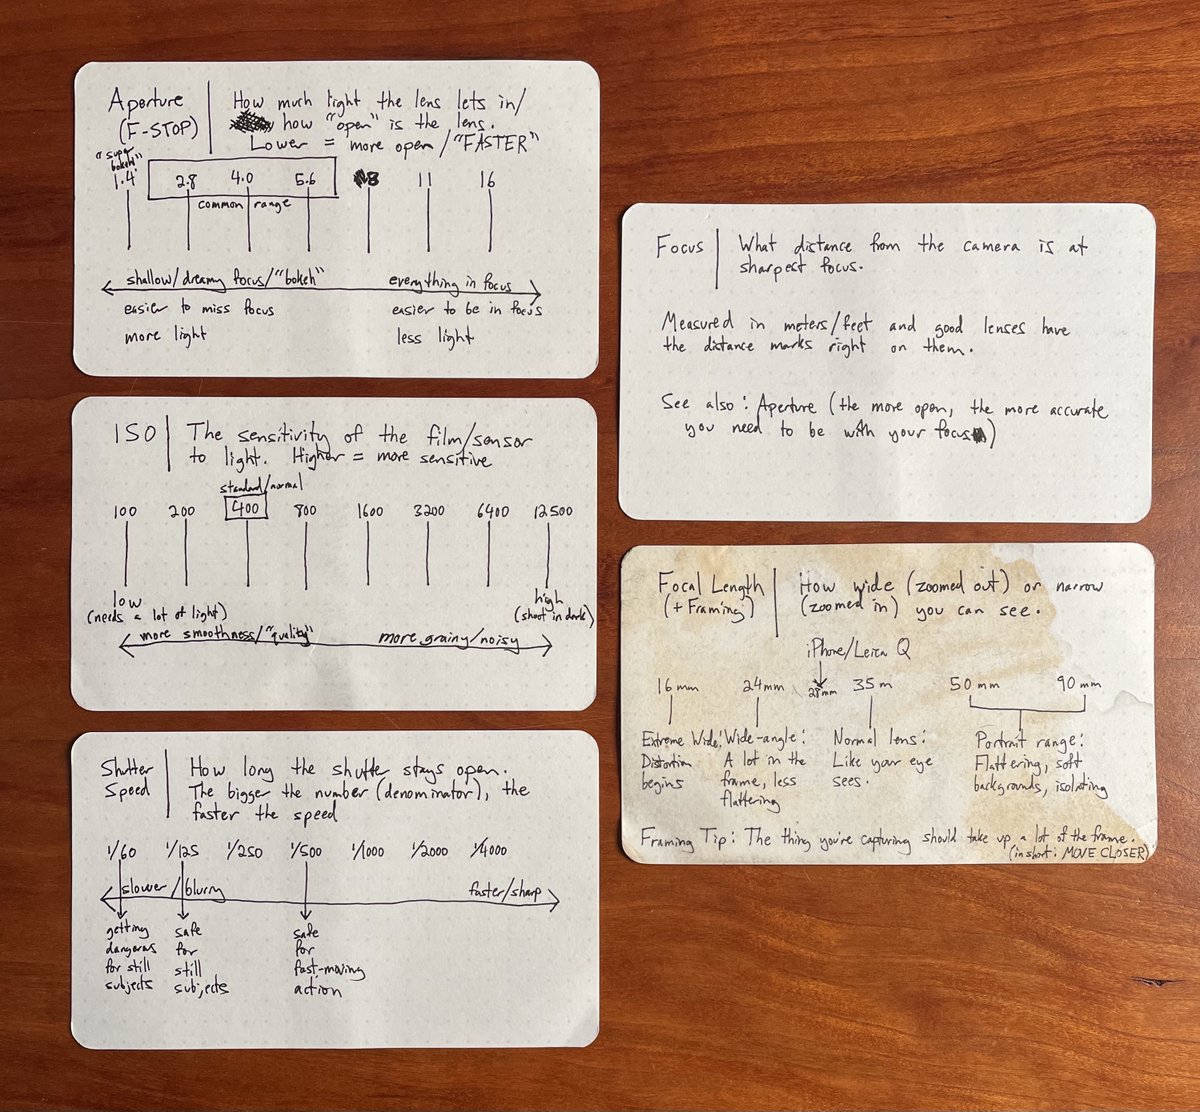 Aperture
(F-STOP)
How much light the lens lets in/
how "open" is the lens.
Lower = more open/"FASTER"
"super
bokeh"
1.4 2.8 4.0 5.6 8 11 16
common range
shallow/dreamy focus/"bokeh" everything in focus
easier to miss focus easier to be in focus
more light less light
ISO
The sensitivity of the film/sensor
to light. Higher = more sensitive
standard/normal
100 200 400 800 1600 3200 6400 12500
low high
(needs a lot of light) (shoot in dark)
more smoothness/"quality" more grainy/noisy
Shutter
Speed
How long the shutter stays open.
The bigger the number (denominator), the
faster the speed
1/60 1/125 1/250 1/500 1/1000 1/2000 1/4000
slower/blurry faster/sharp
getting
dangerous
for still
subjects
safe
for
still
subjects
safe
for
fast-moving
action
Focus
What distance from the camera is at
sharpest focus.
Measured in meters/feet and good lenses have
the distance marks right on them.
See also: Aperture (the more open, the more accurate
you need to be with your focus)
Focal Length
(+ Framing)
How wide (zoomed out) or narrow
(zoomed in) you can see.
iPhone/Leica Q
16mm 24mm 28mm 35m 50mm 90mm
Extreme Wide:
Distortion
begins
Wide-angle:
A lot in the
frame, less
flattering
Normal lens:
Like your eye
sees.
Portrait range:
Flattering, soft
backgrounds, isolating
Framing Tip: The thing you're capturing should take up a lot of the frame.
(in short: MOVE CLOSER)